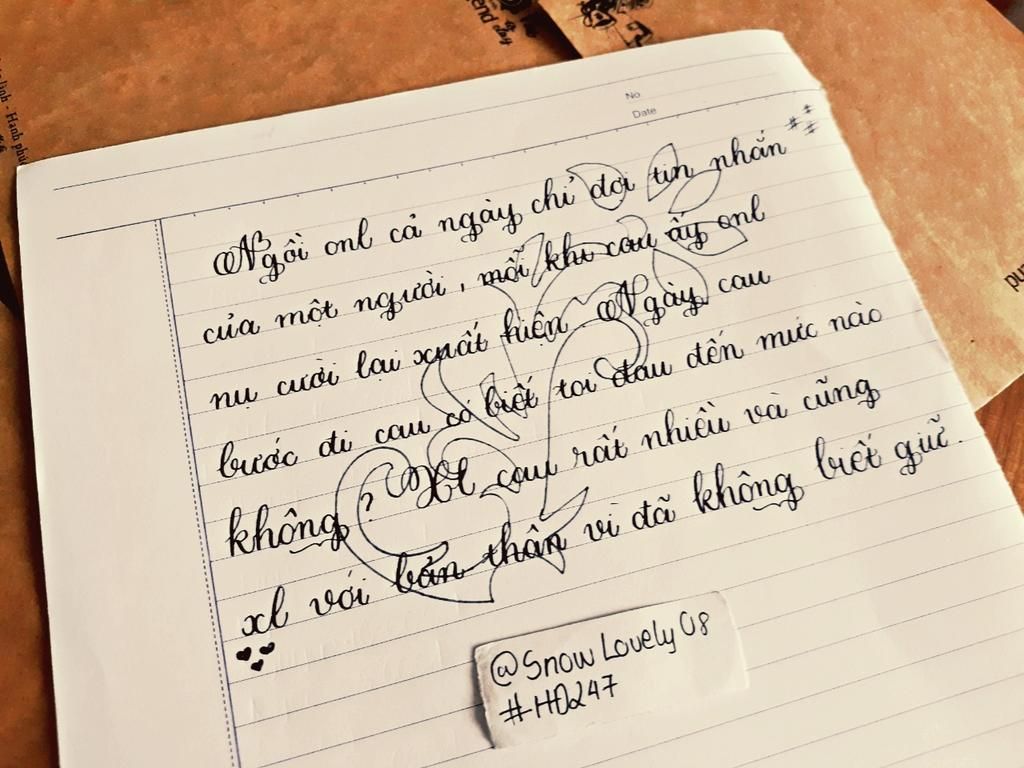 No
Date
Ngồi onl cả ngày chỉ đợi tin nhắn
của một người, mỗi khi cậu ấy onl
nụ cười lại xuất hiện. Ngày cậu
bước đi cậu có biết tôi đau đến mức nào
không? Xl cậu rất nhiều và cũng
xl với bản thân vì đã không biết giữ.
@Snow Lovely 08
#HD247